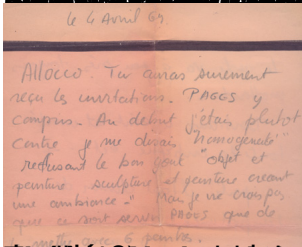 le 6 Avril 69
Allocco. Tu auras surement
reçu les invitations. PAGES y
compris. Au début j'étais plutôt
contre je me disais "homogeneité"
refusant le bon gout "objet et
peinture sculpture et peinture creant
une ambiance" mais je ne crois pas
que ce soit servir PAGES que de
mettre 6 peintres.